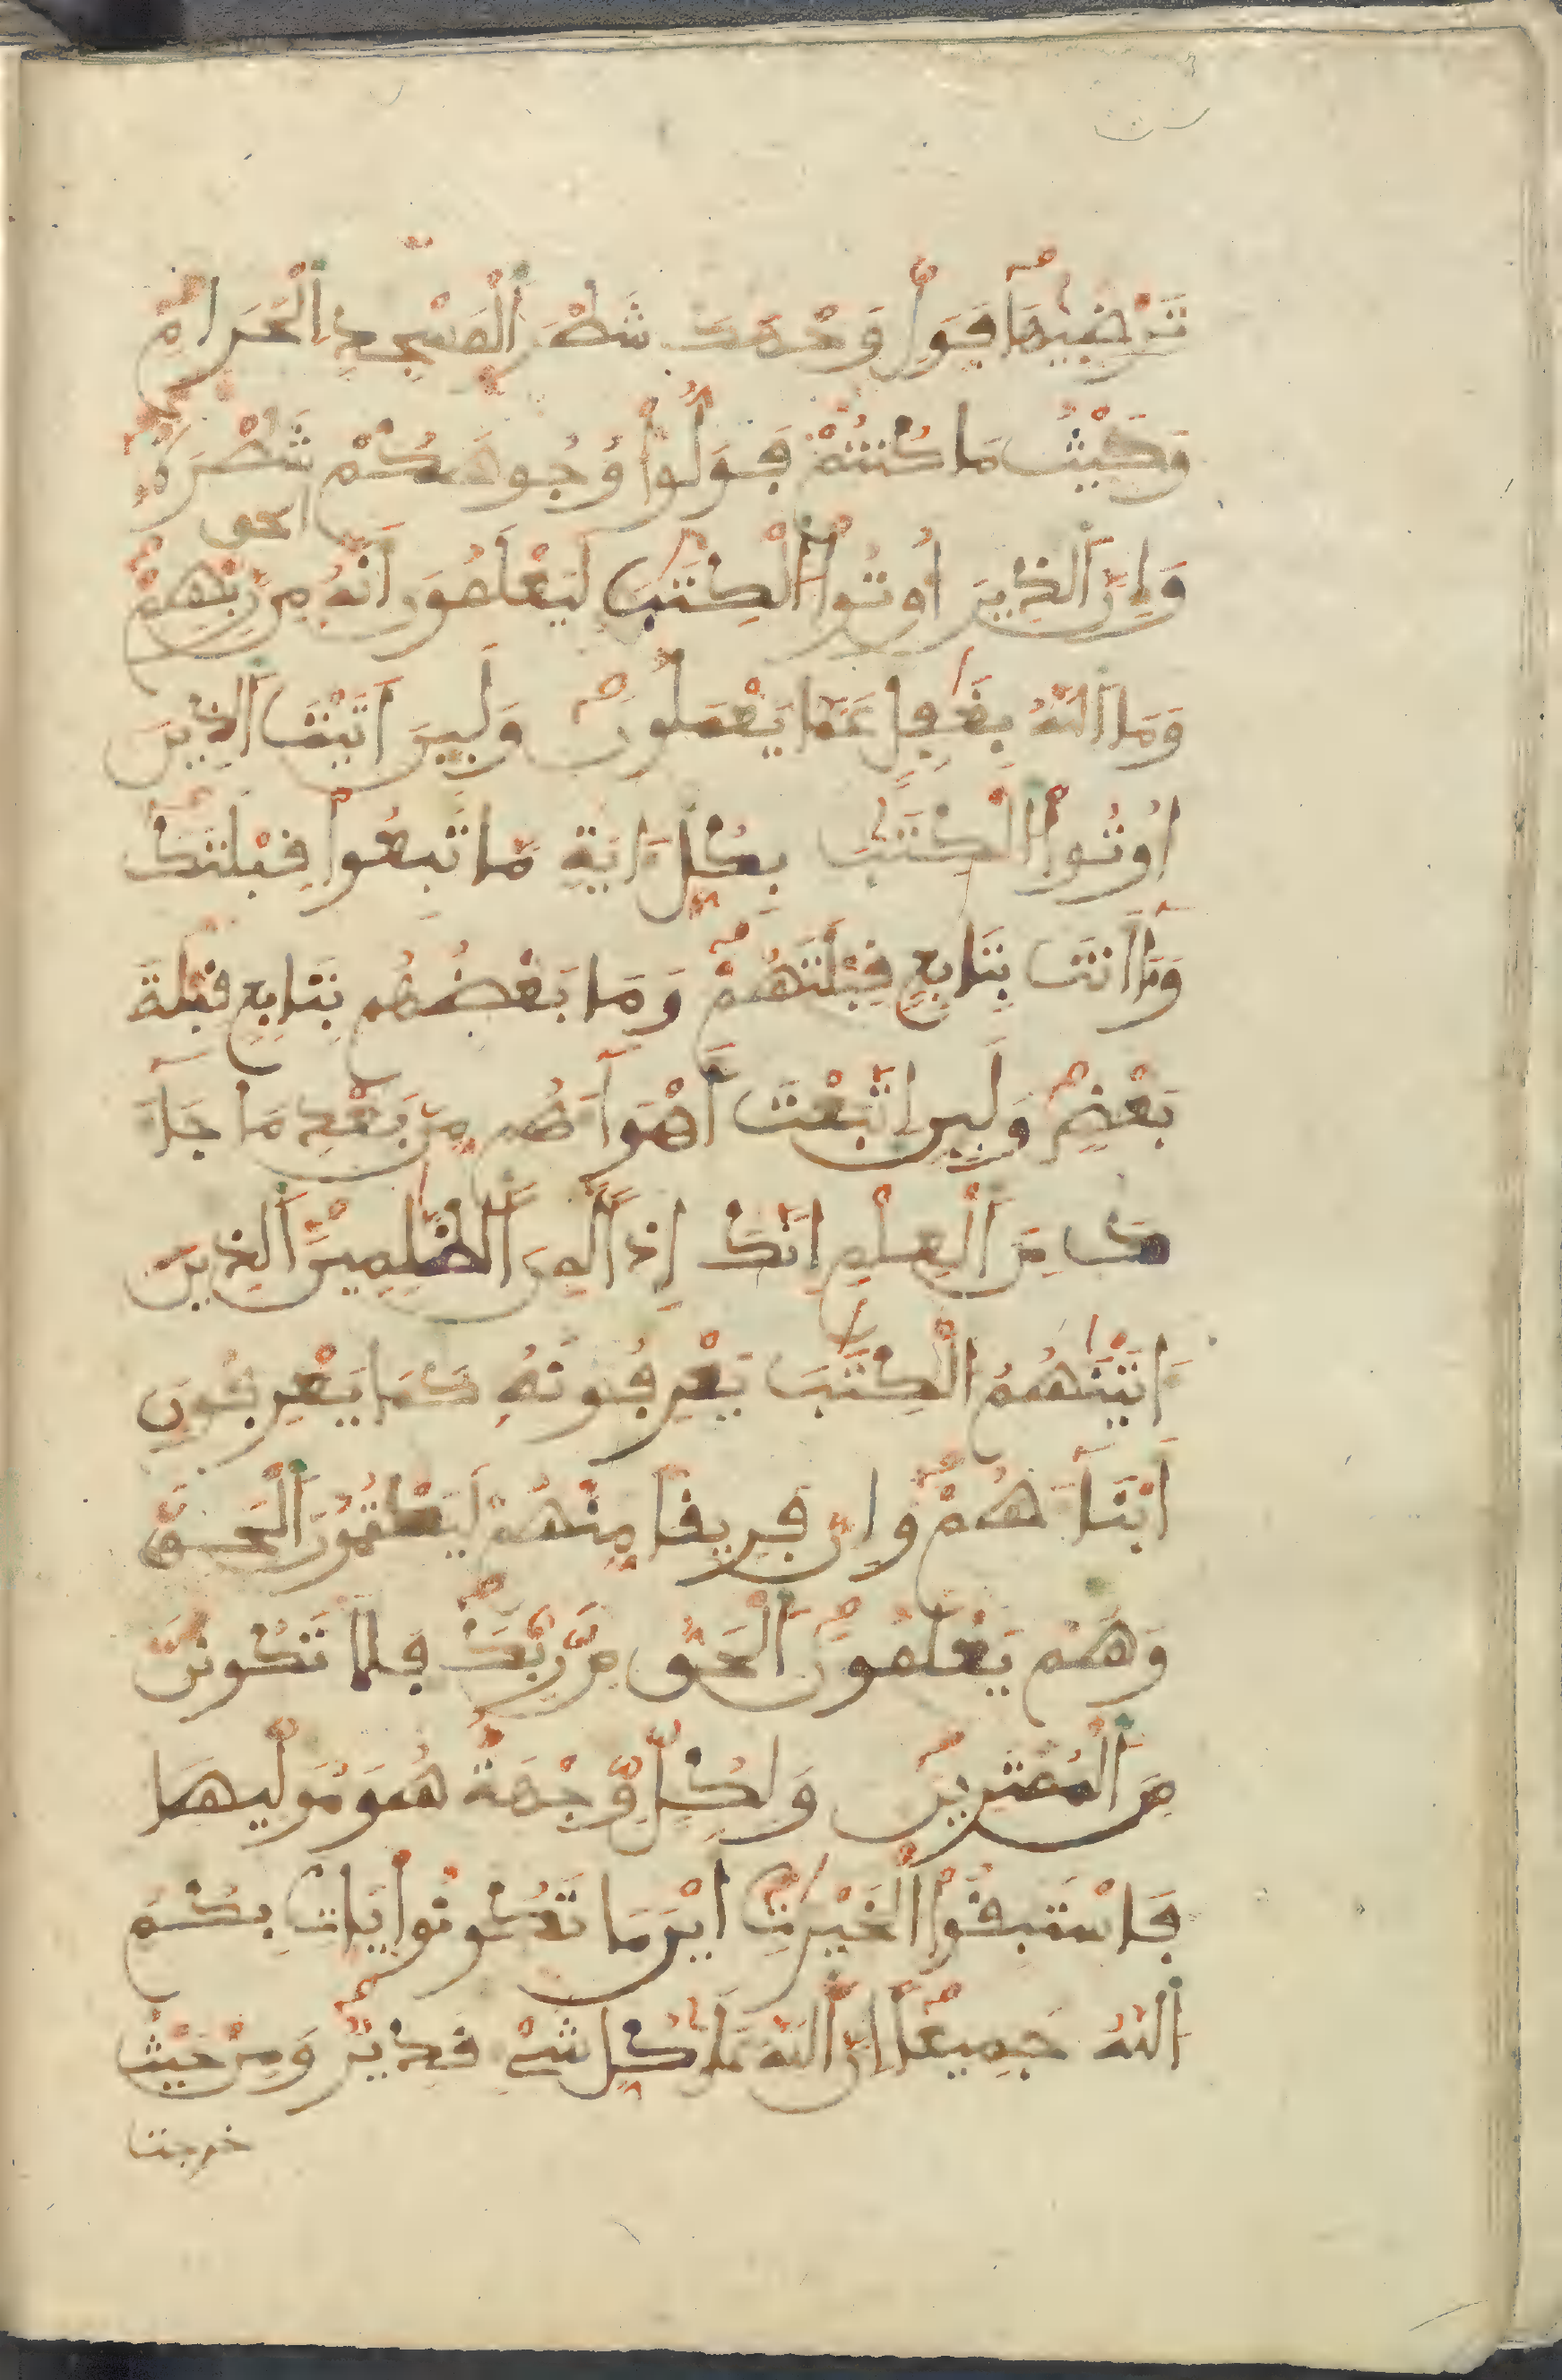 تَرْضَيٰهَا فَوَلِّ وَجْهَكَ شَطْرَ اَ۬لْمَسْجِدِ اِ۬لْحَرَامِ
وَحَيْثُ مَا كُنتُمْ فَوَلُّواْ وُجُوهَكُمْ شَطْرَهُۥ
الحق
وَإِنَّ اَ۬لذِينَ أُوتُواْ اُ۬لْكِتَٰبَ لَيَعْلَمُونَ أَنَّهُ مِن رَّبِّهِمْ
وَمَا اَ۬للَّهُ بِغَٰفِلٍ عَمَّا يَعْمَلُونَ وَلَئِنَ اَتَيْتَ اَ۬لذِينَ
أُوتُواْ اُ۬لْكِتَٰبَ بِكُلِّ ءَايَةٍ مَّا تَبِعُواْ قِبْلَتَكَ
وَمَآ أَنتَ بِتَابِعٍ قِبْلَتَهُمْ وَمَا بَعْضُهُم بِتَابِعٍ قِبْلَةَ
بَعْضٍ وَلَئِنِ اِتَّبَعْتَ أَهْوَآءَهُم مِّن بَعْدِ مَا جَآءَ
كَ مِنَ اَ۬لْعِلْمِ إِنَّكَ إِذاً لَّمِنَ اَ۬لظَّٰلِمِينَ اَ۬لذِينَ
ءَاتَيْنَٰهُمُ الْكِتَٰبَ يَعْرِفُونَهُ كَمَا يَعْرِفُونَ
أَبْنَآءَهُمْ وَإِنَّ فَرِيقاً مِّنْهُمْ لَيَكْتُمُونَ اَ۬لْحَقَّ
وَهُمْ يَعْلَمُونَ اَ۬لْحَقُّ مِن رَّبِّكَ فَلَا تَكُونَنَّ
مِنَ اَ۬لْمُمْتَرِينَ وَلِكُلٍّ وِجْهَةٌ هُوَ مُوَلِّيهَا
فَاسْتَبِقُواْ اُ۬لْخَيْرَٰتِ أَيْنَ مَا تَكُونُواْ يَاتِ بِكُمُ
اُ۬للَّهُ جَمِيعاً إِنَّ اَ۬للَّهَ عَلَىٰ كُلِّ شَےْءٍ قَدِيرٌ وَمِنْ حَيْثُ
خرجت